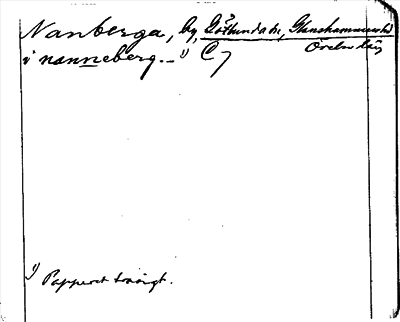 Nanberga, by, Götlunda sn, Glanshammars hd
Örebro län
i nanneberg. – 1) C 7
1) Papperet trasigt.